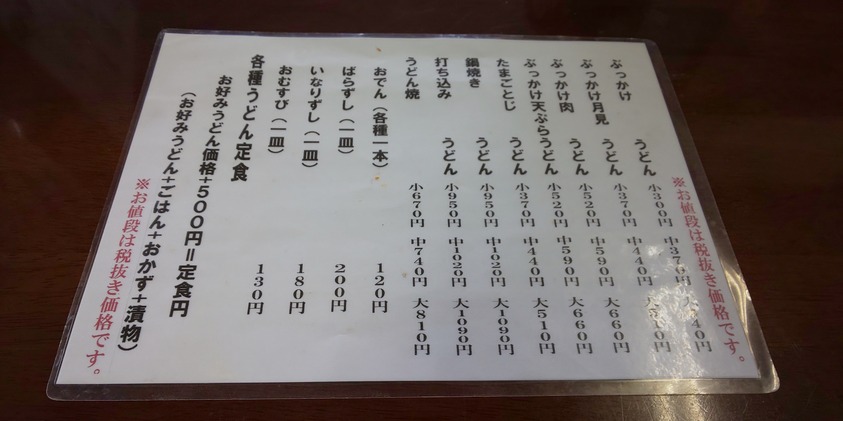 ※お値段は税抜き価格です。
ぶっかけ うどん 小300円 中370円
ぶっかけ月見 うどん 小370円 中440円
ぶっかけ肉 うどん 小520円 中590円 大660円
ぶっかけ天ぷらうどん 小520円 中590円 大660円
たまごとじ うどん 小370円 中440円 大510円
鍋焼き うどん 小950円 中1020円 大1090円
打ち込み うどん 小950円 中1020円 大1090円
うどん焼 小670円 中740円 大810円
おでん（各種一本） 120円
ばらずし（一皿） 200円
いなりずし（一皿） 180円
おむすび（一皿） 130円
各種うどん定食
お好みうどん価格+500円=定食円
（お好みうどん+ごはん+おかず+漬物）
※お値段は税抜き価格です。